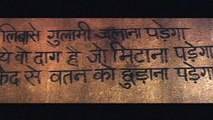 लिबासे गुलामी जलाना पड़ेगा
ये वो दाग है जो मिटाना पड़ेगा
कैद से वतन को छुड़ाना पड़ेगा